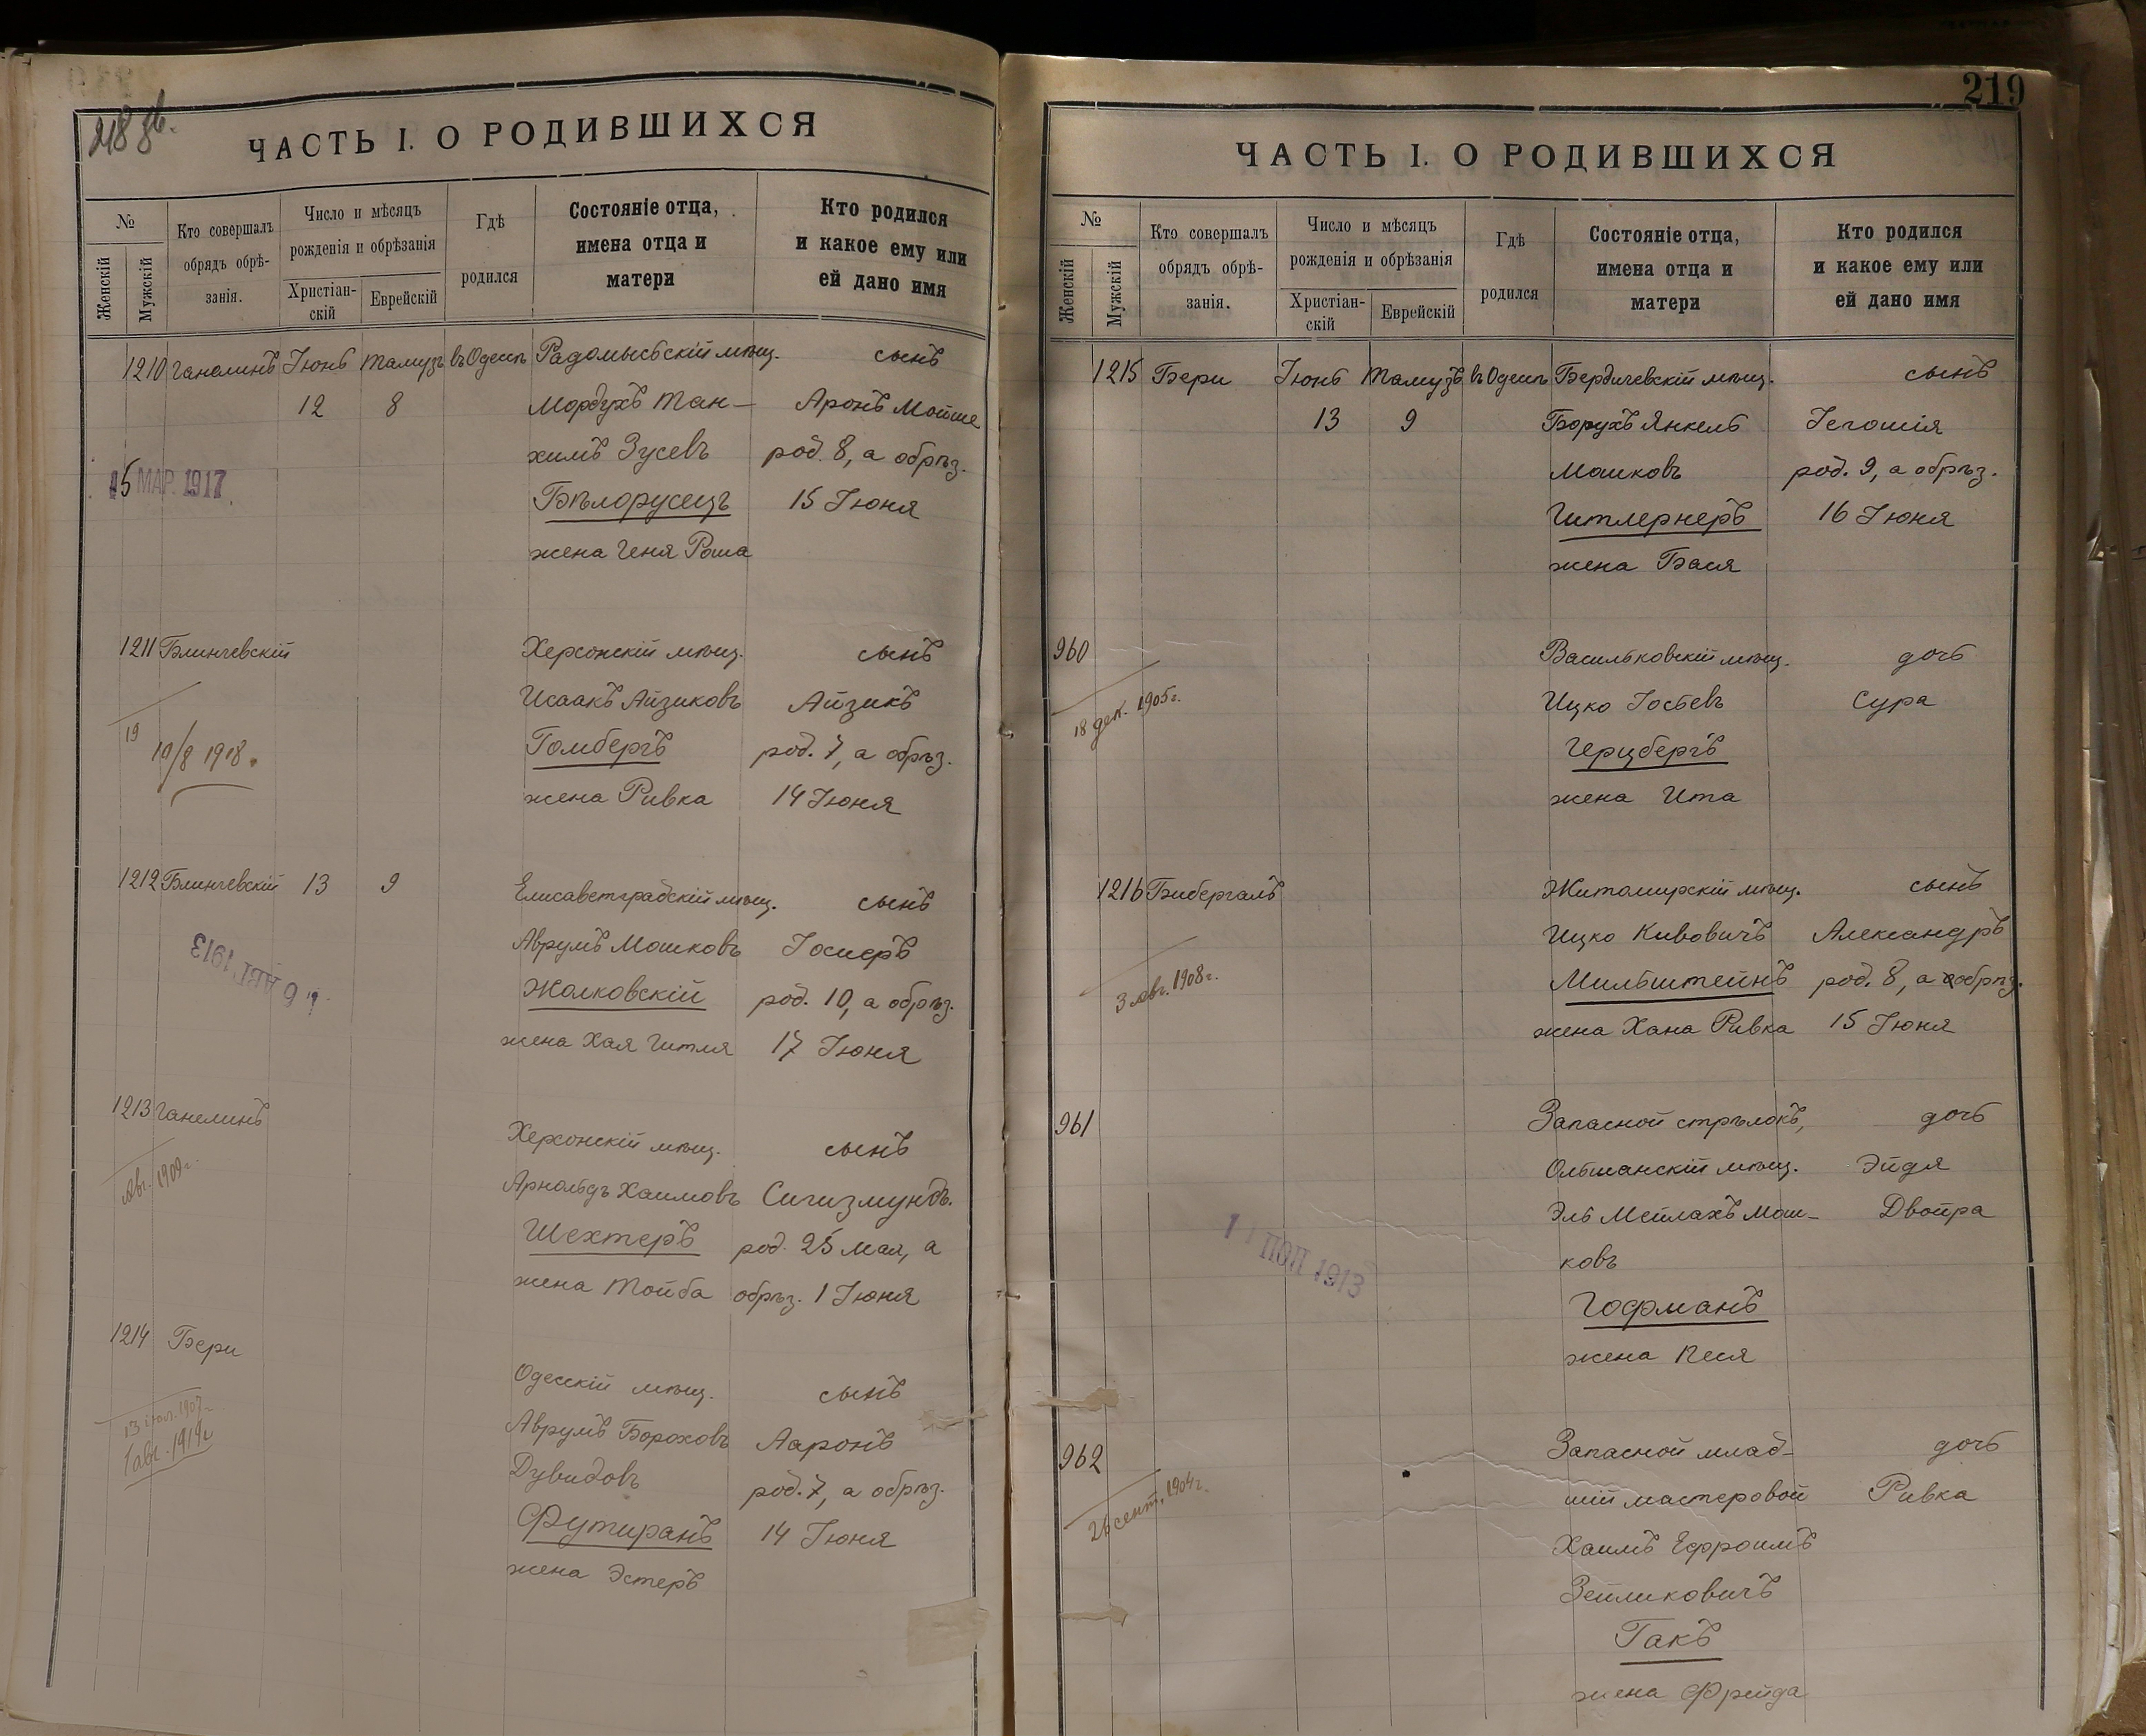 218 об.
ЧАСТЬ I. О РОДИВШИХСЯ
№
Женскій
Мужскій
Кто совершалъ
обрядъ обрѣ-
занія.
Число и мѣсяцъ
рожденія и обрѣзанія
Христіан-
скій
Еврейскій
Гдѣ
родился
Состояніе отца,
имена отца и
матери
Кто родился
и какое ему или
ей дано имя
1210 Ганелинъ Іюнь Тамузъ въ Одессѣ Радомысьскій мѣщ. сынъ
12 8 Мордухъ Тан- Аронъ Мойше
химъ Зусевъ род. 8, а обрѣз.
15 МАР. 1917 Бѣлорусецъ 15 Іюня
жена Геня Роша
1211 Блинчевскій Херсонскій мѣщ. сынъ
Исаакъ Айзиковъ Айзикъ
19 10/8 1918. Гомбергъ род. 7, а обрѣз.
жена Ривка 14 Іюня
1212 Блинчевскій 13 9 Елисаветградскій мѣщ. сынъ
Аврумъ Мошковъ Іосифъ
6 АВГ. 1913 Жолковскій род. 10, а обрѣз.
жена Хая Гитля 17 Іюня
1213 Ганелинъ Херсонскій мѣщ. сынъ
Авг. 1909 г. Арнольдъ Хаимовъ Сигизмундъ.
Шехтеръ род. 25 Мая, а
жена Тойба обрѣз. 1 Іюня
1214 Бери Одесскій мѣщ. сынъ
13 іюл. 1907 Аврумъ Бороховъ Ааронъ
1 авг. 1919 г. Дувидовъ род. 7, а обрѣз.
Футиранъ 14 Іюня
жена Эстеръ
219
ЧАСТЬ I. О РОДИВШИХСЯ
№
Женскій
Мужскій
Кто совершалъ
обрядъ обрѣ-
занія.
Число и мѣсяцъ
рожденія и обрѣзанія
Христіан-
скій
Еврейскій
Гдѣ
родился
Состояніе отца,
имена отца и
матери
Кто родился
и какое ему или
ей дано имя
1215 Бери Іюнь Тамузъ въ Одессѣ Бердичевскій мѣщ. сынъ
13 9 Борухъ Янкель Іегошія
Мошковъ род. 9, а обрѣз.
Гитлернеръ 16 Іюня
жена Бася
960 Васильковскій мѣщ. дочь
18 дек. 1905 г. Ицко Іосьевъ Сура
Герцбергъ
жена Ита
1216 Бибергалъ Житомирскій мѣщ. сынъ
Ицко Кивовичъ Александръ
3 Авг. 1908 г. Мильштейнъ род. 8, а обрѣз.
жена Хана Ривка 15 Іюня
961 Запасной стрѣлокъ, дочь
Ольшанскій мѣщ. Эйдя
Эль Мейлахъ Мош- Двойра
1913 ковъ
Гофманъ
жена Песя
962 Запасной млад- дочь
26 сент. 1904 г. шій мастеровой Ривка
Хаимъ Ефроимъ
Зейликовичъ
Гакъ
жена Фрейда